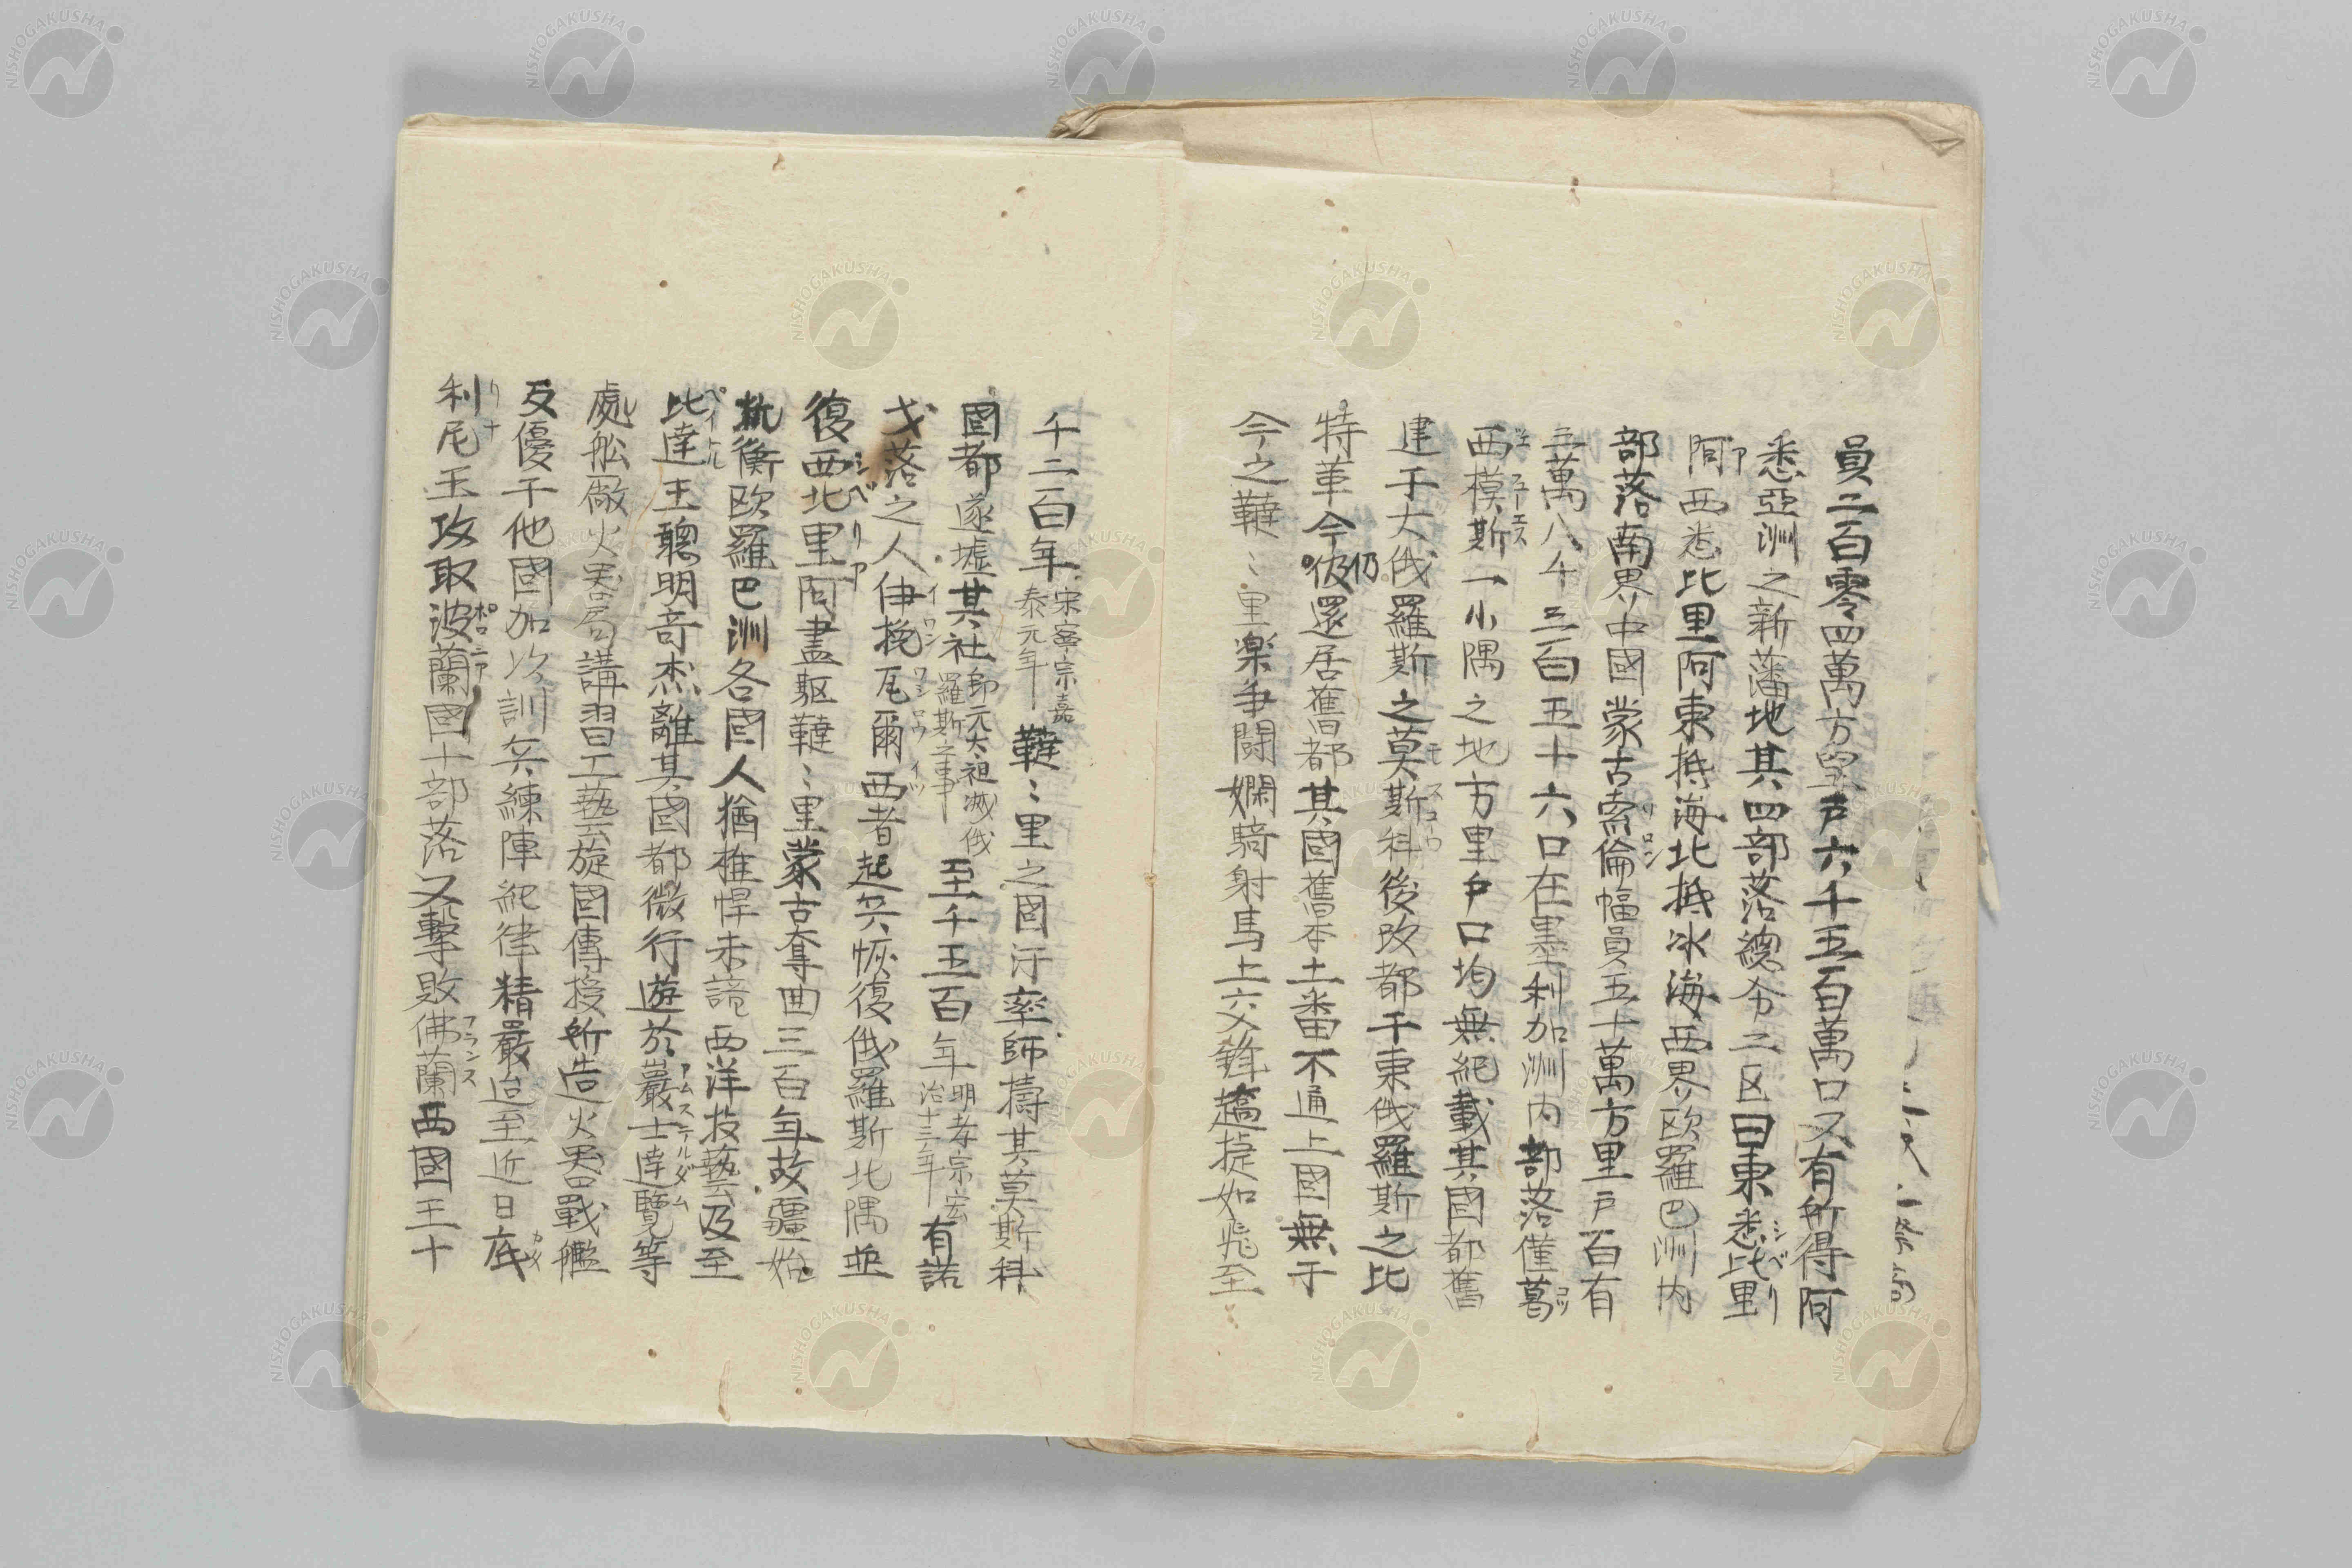 員二百零四萬方里戸六千五百萬口又有所得阿
悉亞洲之新藩地其四部落總分二区曰東悉比里
阿西悉比里阿東抵海北抵冰海西界欧羅巴洲内
部落南界中國蒙古索倫幅員五十萬方里戸百有
三萬八千三百五十六口在墨利加洲内部落僅葛
西模斯一小隅之地方里戸口均無紀載其國都舊
建于大俄羅斯之莫斯科後改都于東俄羅斯之比
特革今仍還居舊都其國舊本土番不通上國無于
今之韃〻里楽争闘嫻騎射馬上交鋒趫捷如飛至
千二百年宋寧宗嘉泰元年韃〻里之國汗率師擣其莫斯科
國都遂墟其社即元太祖滅俄羅斯之事至千五百年明孝宗宏治十三年有諾
戈落之人伊挽瓦爾西者起兵恢復俄羅斯北隅並
復西北里阿盡驅韃〻里蒙古奪回三百年故疆始
抗衡欧羅巴洲各國人猶椎悍未諳西洋技藝及至
比達王聰明奇杰離其國都微行遊於巖士達覽等
處舩廠火器局講習工藝旋國傳授所造火器戰艦
反優于他國加以訓兵練陣紀律精嚴迨至近日底
利尼王攻取波蘭國十部落又擊敗佛蘭西國王十